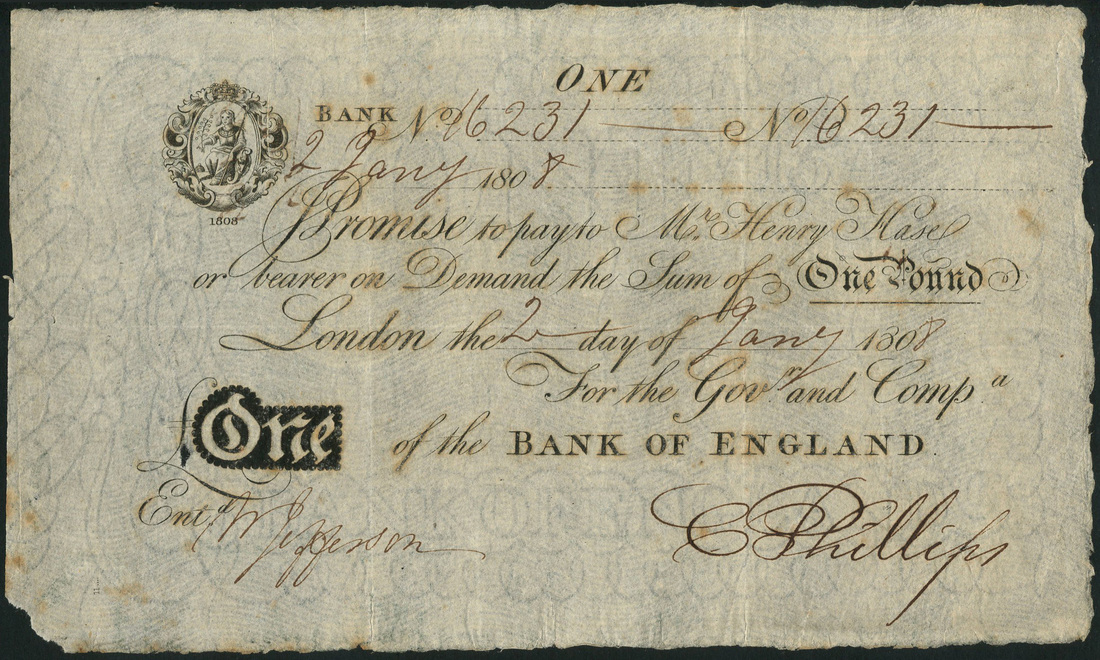 ONE
BANK No 16231 No 16231
2 Jany 1808
1808
I Promise to pay to Mr. Henry Hase
or bearer on Demand the Sum of One Pound
London the 2 day of Jany 1808
For the Govr. and Compa.
£ One of the BANK OF ENGLAND.
Entd. W Jefferson
C Phillips